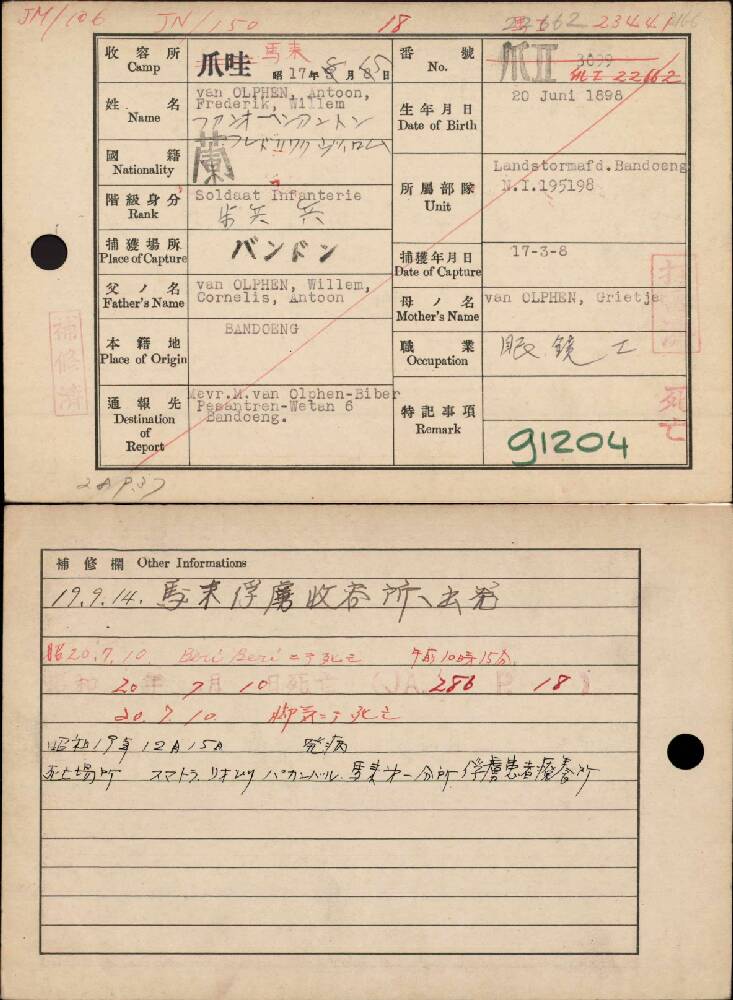 JM/106 JN/150 18 22662 2344 P166
收容所 Camp 爪哇 馬来 昭17年8月15日
番號 No. 爪II 3099 爪I 22662
姓名 Name van OLPHEN, Antoon, Frederik, Willem
ファンオーヘンアントン
フレドリック ウィロム
生年月日 Date of Birth 20 Juni 1898
國籍 Nationality 蘭
所屬部隊 Unit Landstormafd. Bandoeng
N.I.195198
階級身分 Rank Soldaat Infanterie
歩兵 兵
捕獲場所 Place of Capture バンドン
捕獲年月日 Date of Capture 17-3-8
父ノ名 Father's Name van OLPHEN, Willem, Cornelis, Antoon
母ノ名 Mother's Name van OLPHEN, Grietje
本籍地 Place of Origin BANDOENG
職業 Occupation 眼鏡工
通報先 Destination of Report Mevr.M.van Olphen-Biber
Pesantren-Wetan 6
Bandoeng.
特記事項 Remark 91204
補修済
死亡
補修欄 Other Informations
19.9.14. 馬来俘虜收容所ヘ出発
昭20.7.10. Beri Beri ニテ死亡 午前10時15分
昭和20年7月10日死亡 (JA. 286 P. 18)
20.7.10. 脚気ニテ死亡
昭和19年12月15日 発病
死亡場所 スマトラ リオウ パカンバル 馬来第一分所 俘虜患者療養所